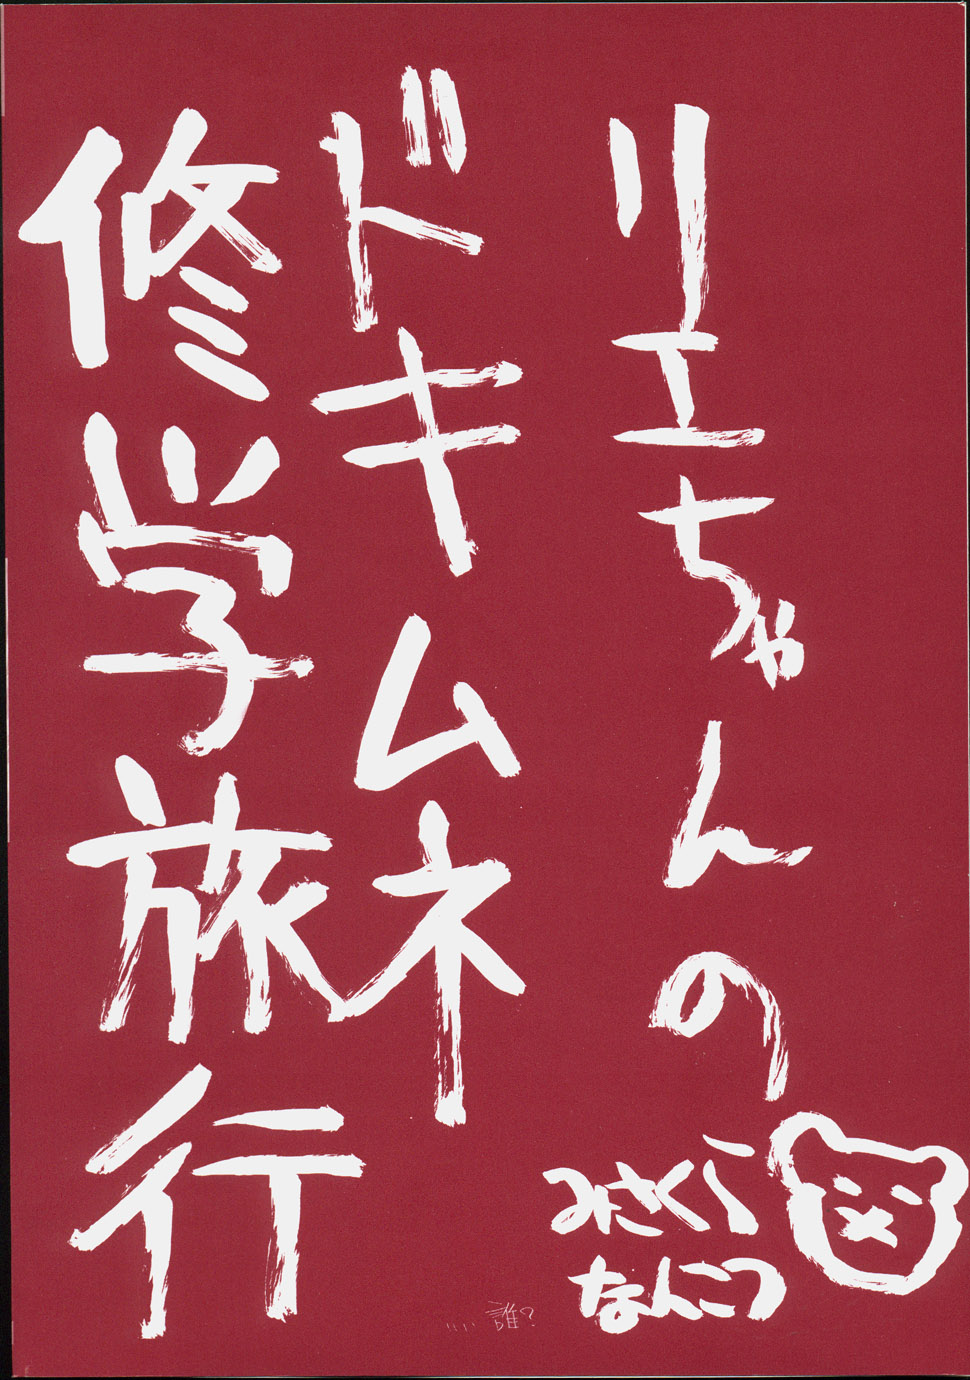 リエちゃんの
ドキムネ
修学旅行
みさくら
なんこつ
誰?